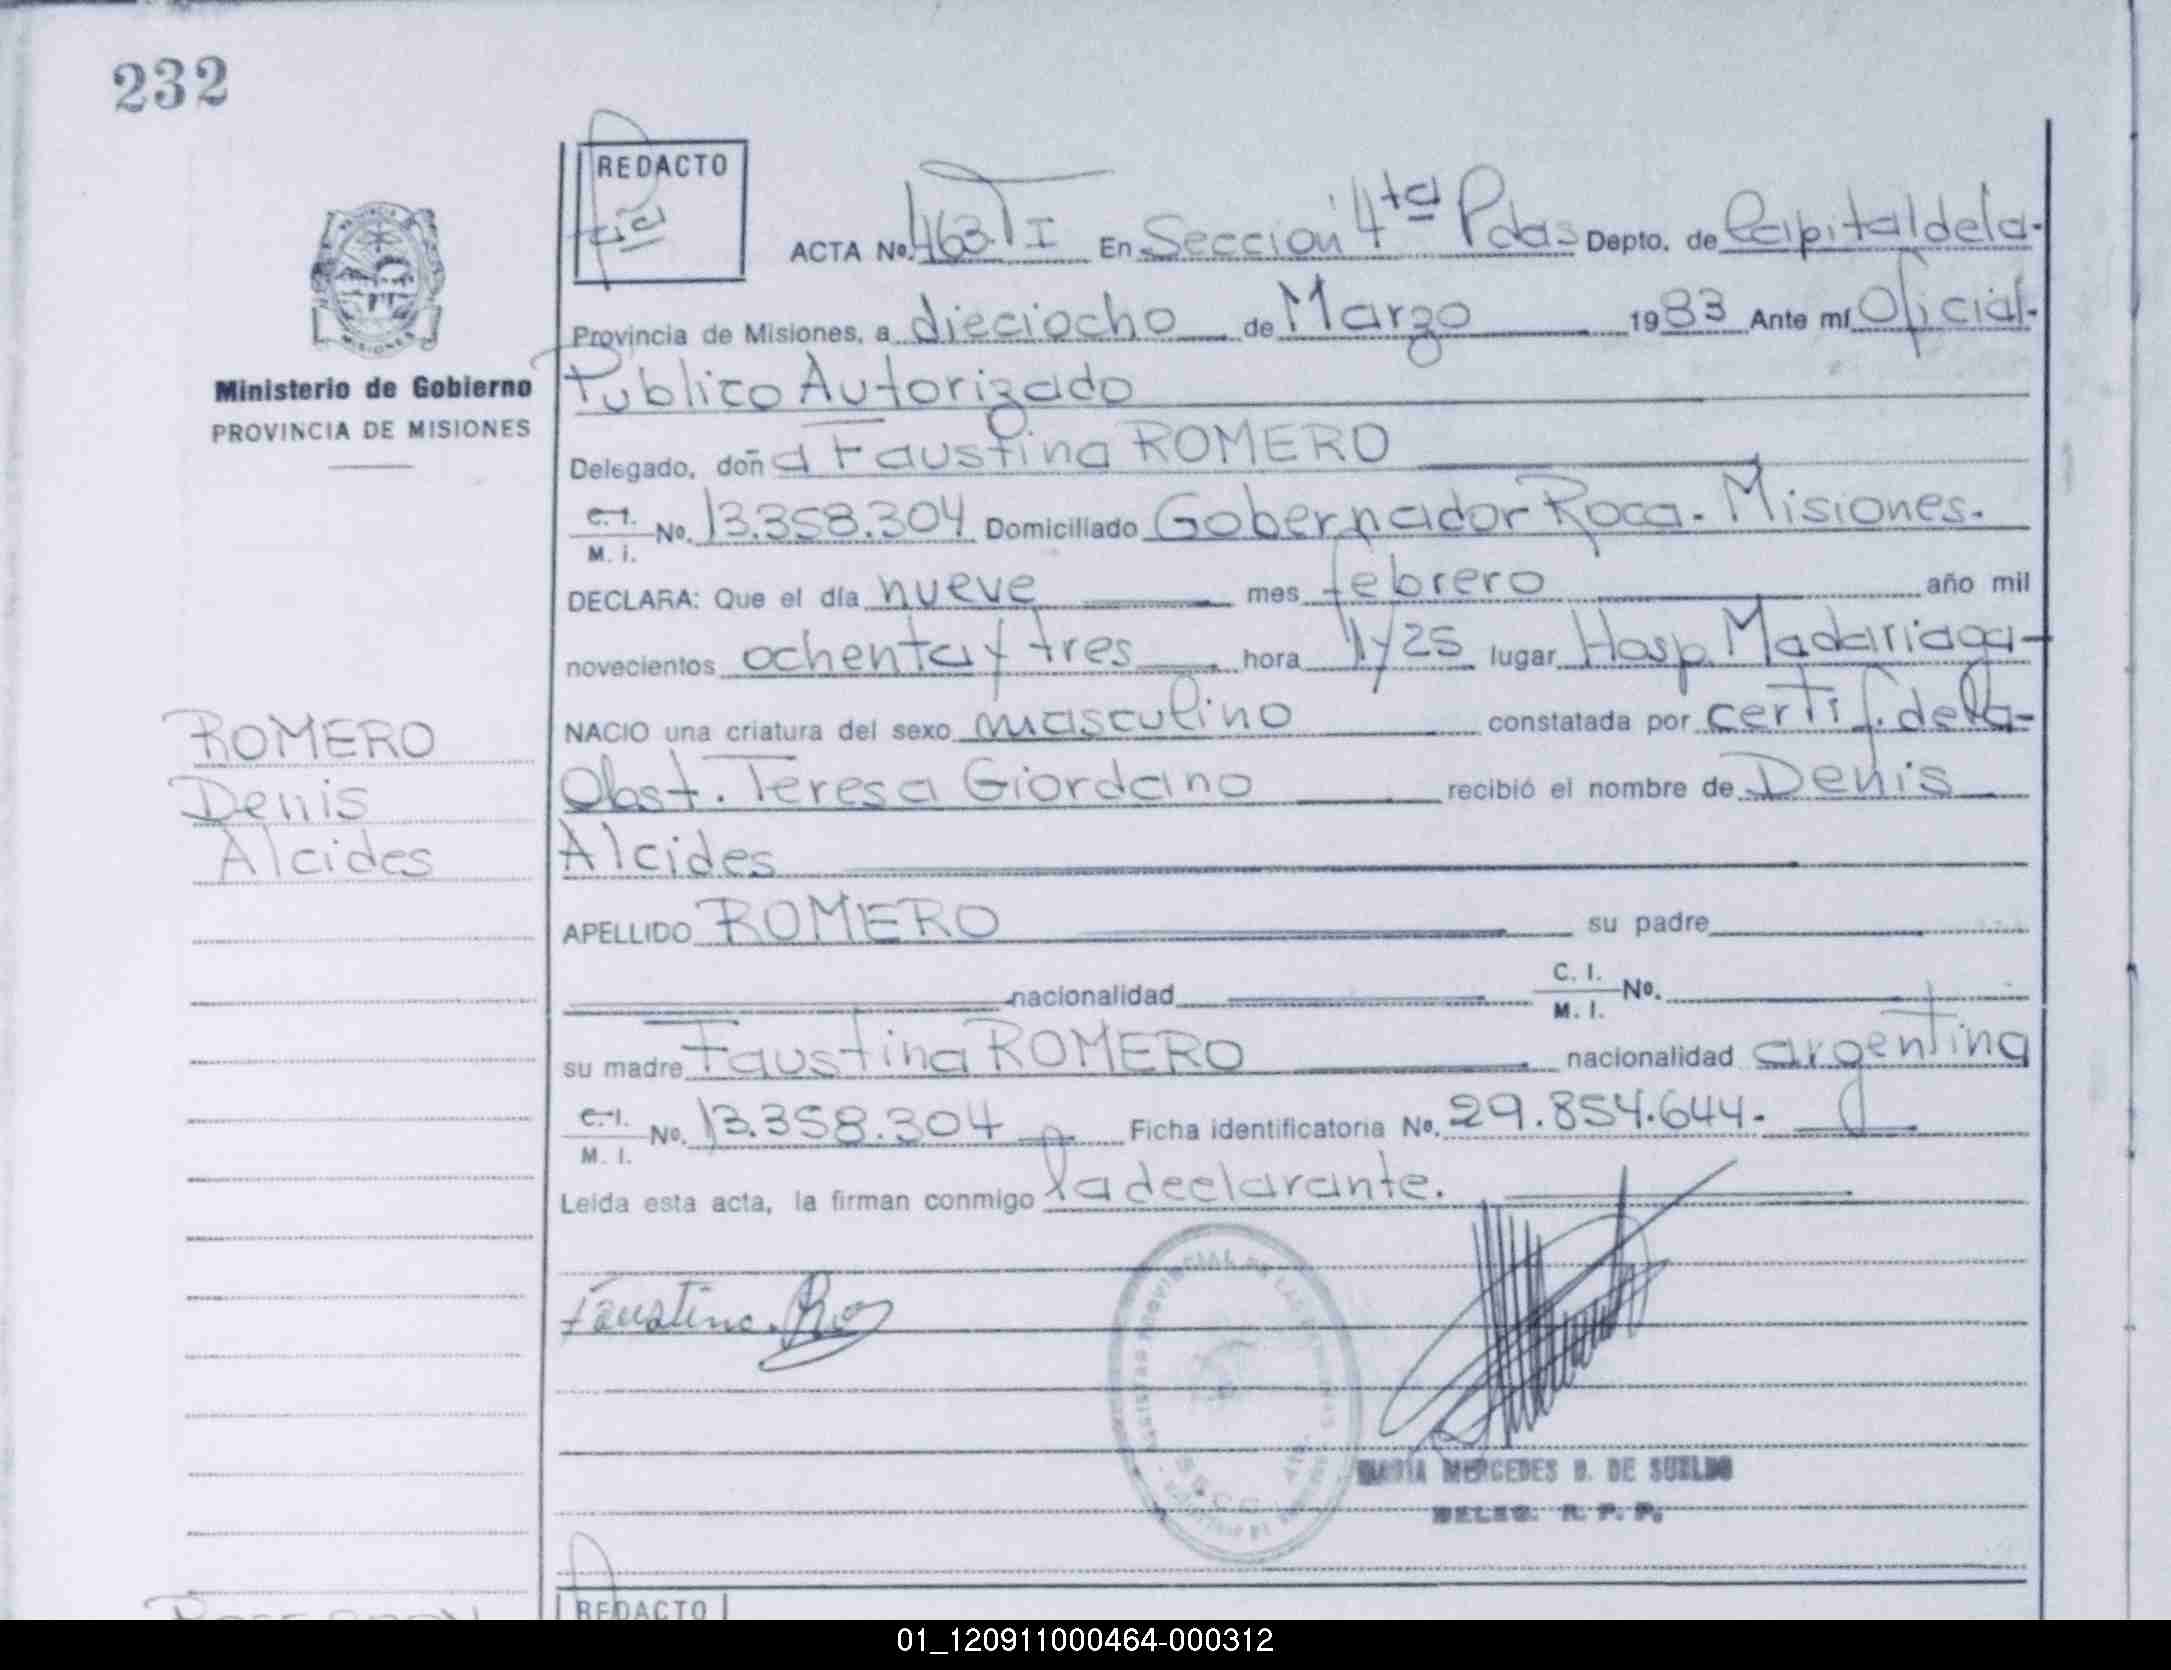 232
REDACTO
ACTA No. 463. T I En Sección 4ta Pdas Depto. de Capital de la-
Provincia de Misiones, a dieciocho de Marzo 1983 Ante mí Oficial-
Ministerio de Gobierno
PROVINCIA DE MISIONES
Publico Autorizado
Delegado, doña Faustina ROMERO
C. I. / M. I. No. 13.358.304 Domiciliado Gobernador Roca. Misiones.
DECLARA: Que el día nueve mes febrero año mil
novecientos ochenta y tres hora 1 y 25 lugar Hosp. Madariaga-
ROMERO
Denis
Alcides
NACIO una criatura del sexo masculino constatada por certif. de la-
Obst. Teresa Giordano recibió el nombre de Denis
Alcides
APELLIDO ROMERO su padre
nacionalidad C. I. / M. I. No.
su madre Faustina ROMERO nacionalidad argentina
C. I. / M. I. No. 13.358.304 Ficha identificatoria No. 29.854.644.
Leída esta acta, la firman conmigo la declarante.
Faustina
MARIA MERCEDES B. DE SUELDO
DELEG. R. P. P.
REDACTO
01_120911000464-000312